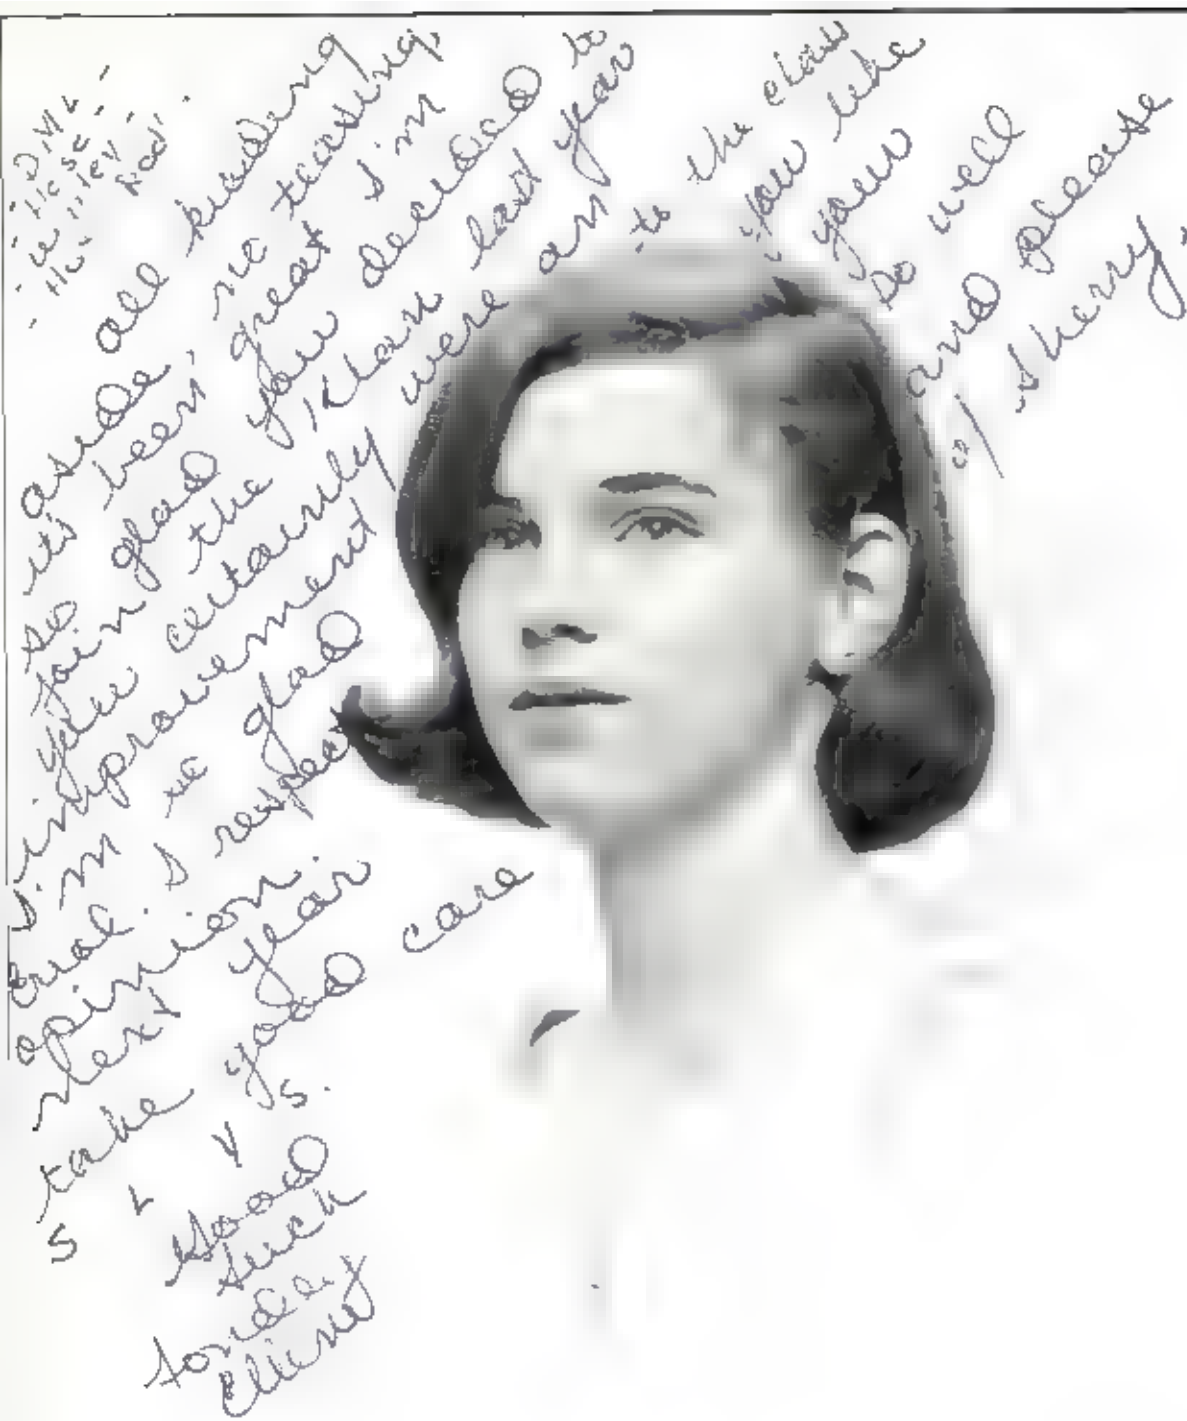 all kidding
aside, no teasing,
its been great I'm
so glad you decided to
join the Klan last year
you certainly were an
improvement to the class
I'm so glad you like
I respect your
opinion. Do well
Next year and please
take good care of Sherry,
S L Y S.
Good
Luck